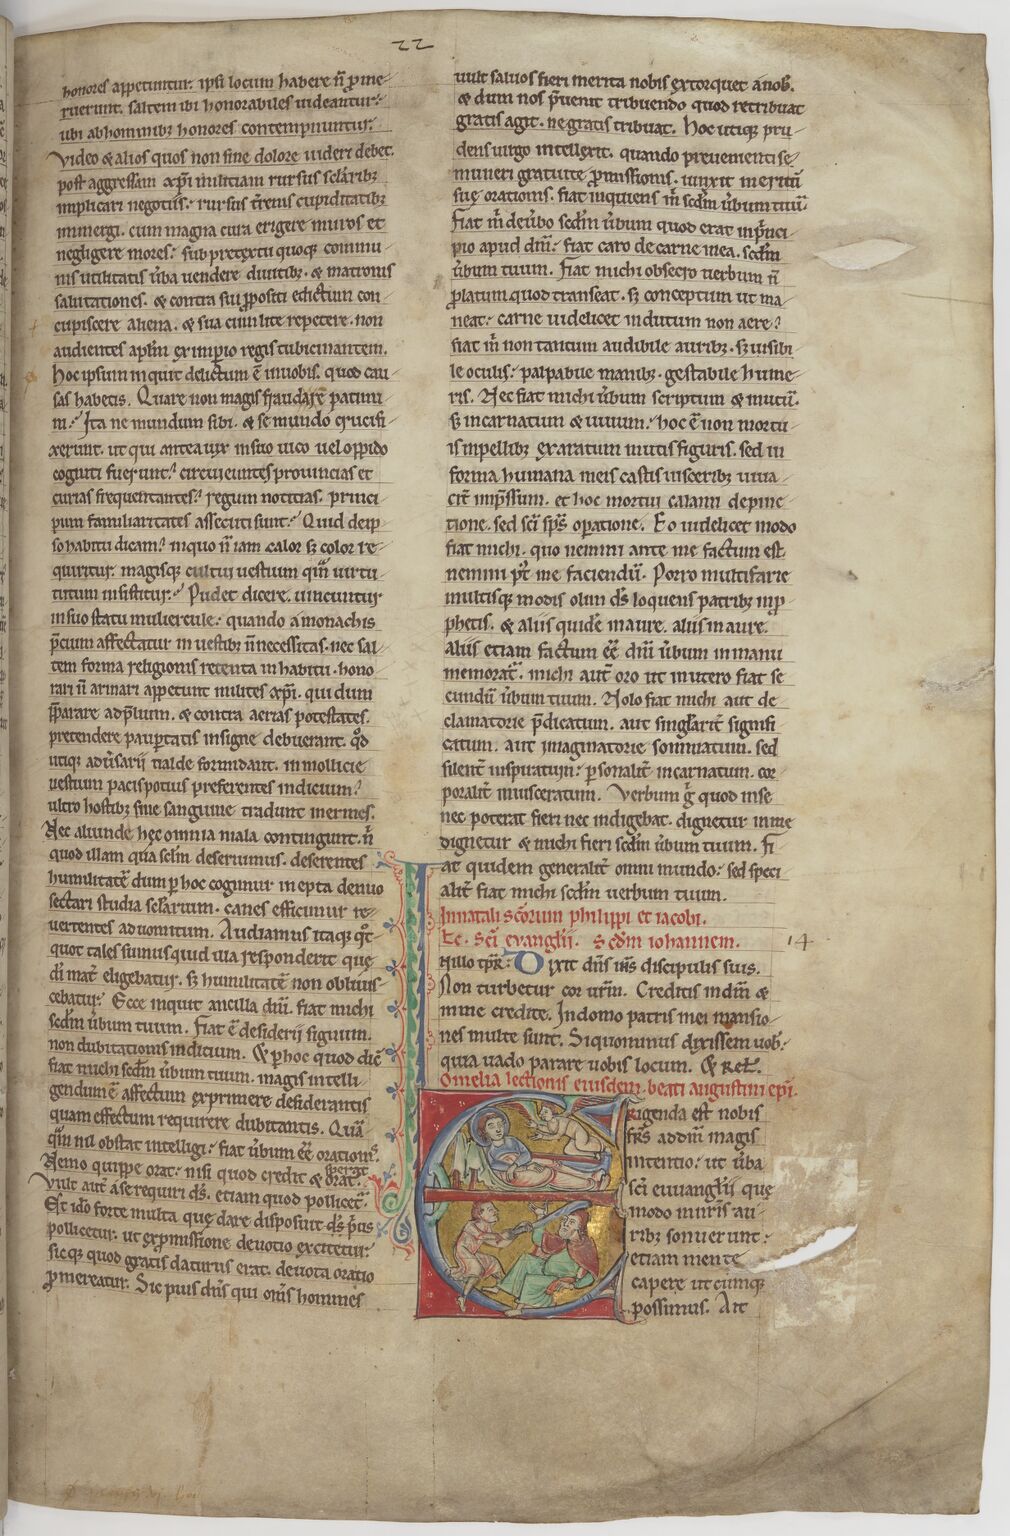 22
honores appetuntur. ipsi locum habere n̄ pͥme-
ruerunt. saltem ibi honorabiles uideantur.
ubi ab hominibꝫ honores contempnuntur.
Video & alios quos non sine dolore uideri debet.
post aggressam xp̄i militiam rursus sclaribꝫ
implicari negotiis. rursus t̄renis cupiditatibꝫ
immergi. cum magna cura erigere muros et
negligere mores. sub pretextu quoqꝫ commu-
nis utilitatis ūba uendere diuitibꝫ. & matronis
salutationes. & contra sui ꝓpositi edictum con-
cupiscere aliena. & sua cum lite repetere. non
audientes apl̄m ex imꝑio regis tubicinantem.
Hoc ipsum inquit delictum ē in uobis. quod cau-
sas habetis. Quare non magis fraudarē patimi-
ni. Ita ne mundum sibi. & se mundo crucifi-
xerunt. ut qui antea uix in suo uico uel oppido
cogniti fuerunt. circueuntes prouincias et
curias frequentantes. regum noticias. princi-
pum familiaritates assecuti sunt. Quid de ip-
so habitu dicam. in quo n̄ iam calor sꝫ color re-
quiritur. magisqꝫ cultui uestium qm̄ uirtu-
tum insistitur. Pudet dicere. uincuntur
in suo statu muliercule. quando a monachis
p̄cium affectatur in uestibꝫ n̄ necessitas. nec sal-
tem forma religionis retenta in habitu. hono-
rari n̄ armari appetunt milites xp̄i. qui dum
p̄parare ad p̄lium. & contra aerias potestates.
pretendere paupertatis insigne debuerant. qd̄
utiqꝫ adūsarii ualde formidant. in mollicie
uestium pacis potius preferentes indicium.
ultro hostibꝫ sine sanguine tradunt inermes.
Nec aliunde hęc omnia mala contingunt. n̄
quod illam qua selm̄ deseruimus. deserentes
humilitatē dum ꝑ hoc cogimur inepta denuo
sectari studia sclarium. canes efficimur re-
uertentes ad uomitum. Audiamus itaqꝫ qt̄
quot tales sumus quid illa responderit que
dī mat̄ eligebatur. sꝫ humilitatē non obliuis-
cebatur. Ecce inquit ancilla dn̄i. fiat michi
scdm̄ ūbum tuum. Fiat ē desiderii signum.
non dubitationis indicium. & ꝑ hoc quod dic̄
fiat michi scdm̄ ūbum tuum. magis intelli-
gendum ē affectum exprimere desiderantis
quam effectum requirere dubitantis. Quā-
qm̄ nil obstat intelligi. fiat ūbum eē orationis.
Nemo quippe orat. nisi quod credit & sperat.
Vult aut̄ a se requiri ds̄. etiam quod pollicet̄.
Est ido forte multa que dare disposuit ds̄. p̄us
pollicetur. ut ex ꝓmissione deuotio excitetur.
sicqꝫ quod gratis daturus erat. deuota oratio
ꝓmereatur. Sic pius dn̄s qui om̄s homines
uult saluos fieri merita nobis extorquet a nob̄.
& dum nos p̄uenit tribuendo quod retribuat
gratis agit. ne gratis tribuat. Hoc utiqꝫ pru-
dens uirgo intellexit. quando preuenienti se
muneri gratuite ꝓmissionis. iunxit meritū
sue orationis. fiat inquiens m̄ scdm̄ ūbum tuū.
Fiat m̄ de ūbo scdm̄ ūbum quod erat in p̄nci-
pio apud dm̄. fiat caro de carne mea. scdm̄
ūbum tuum. Fiat michi obsecro uerbum n̄
ꝓlatum quod transeat. sꝫ conceptum ut ma-
neat. carne uidelicet indutum non aere.
fiat m̄ non tantum audibile auribꝫ. sꝫ uisibi-
le oculis. palpabile manibꝫ. gestabile hume-
ris. Nec fiat michi ūbum scriptum & mutū.
sꝫ incarnatum & uiuum. hoc ē non mortu-
is in pellibꝫ exaratum mutis figuris. sed in
forma humana meis castis uisceribꝫ uiua-
cit̄ imp̄ssum. et hoc mortui calami depinc-
tione. sed scī sps̄ oꝑatione. Eo uidelicet modo
fiat michi. quo nemini ante me factum est.
nemini pt̄ me faciendū. Porro multifarie
multisqꝫ modis olim ds̄ loquens patribꝫ in ꝓ-
phetis. & aliis quidē in aure. aliis in aure.
aliis etiam factum eē dn̄i ūbum in manu
memorat̄. michi aut̄ oro ut in utero fiat se-
cundū ūbum tuum. Nolo fiat michi aut de-
clamatorie p̄dicatum. aut singlarit̄ signifi-
catum. aut imaginatorie somniatum. sed
silent̄ inspiratum. ꝑsonalit̄ incarnatum. cor-
poralit̄ inuisceratum. Verbum g̊ quod in se
nec poterat fieri nec indigebat. dignetur in me
dignetur & michi fieri scdm̄ ūbum tuum. Fi-
at quidem generalit̄ omni mundo. sed speci-
alit̄ fiat michi scdm̄ uerbum tuum.
In natali scōrum philippi et iacobi.
Lc. scī evangl̄ii. scdm̄ iohannem. 14
N illo tp̄r. Dixit dn̄s ih̄s discipulis suis.
Non turbetur cor ur̄m. Creditis in dm̄ &
in me credite. In domo patris mei mansio-
nes multe sunt. Si quominus dixissem uob̄.
quia uado parare uobis locum. & Rel̄.
Omelia lectionis eiusdem. beati augustini ep̄i.
Erigenda est nobis
frs̄ ad dm̄ magis
intentio. ut ūba
scī euuangl̄ii que
modo nur̄is au-
ribꝫ sonuerunt.
etiam mente
capere utcumqꝫ
possimus. Ait